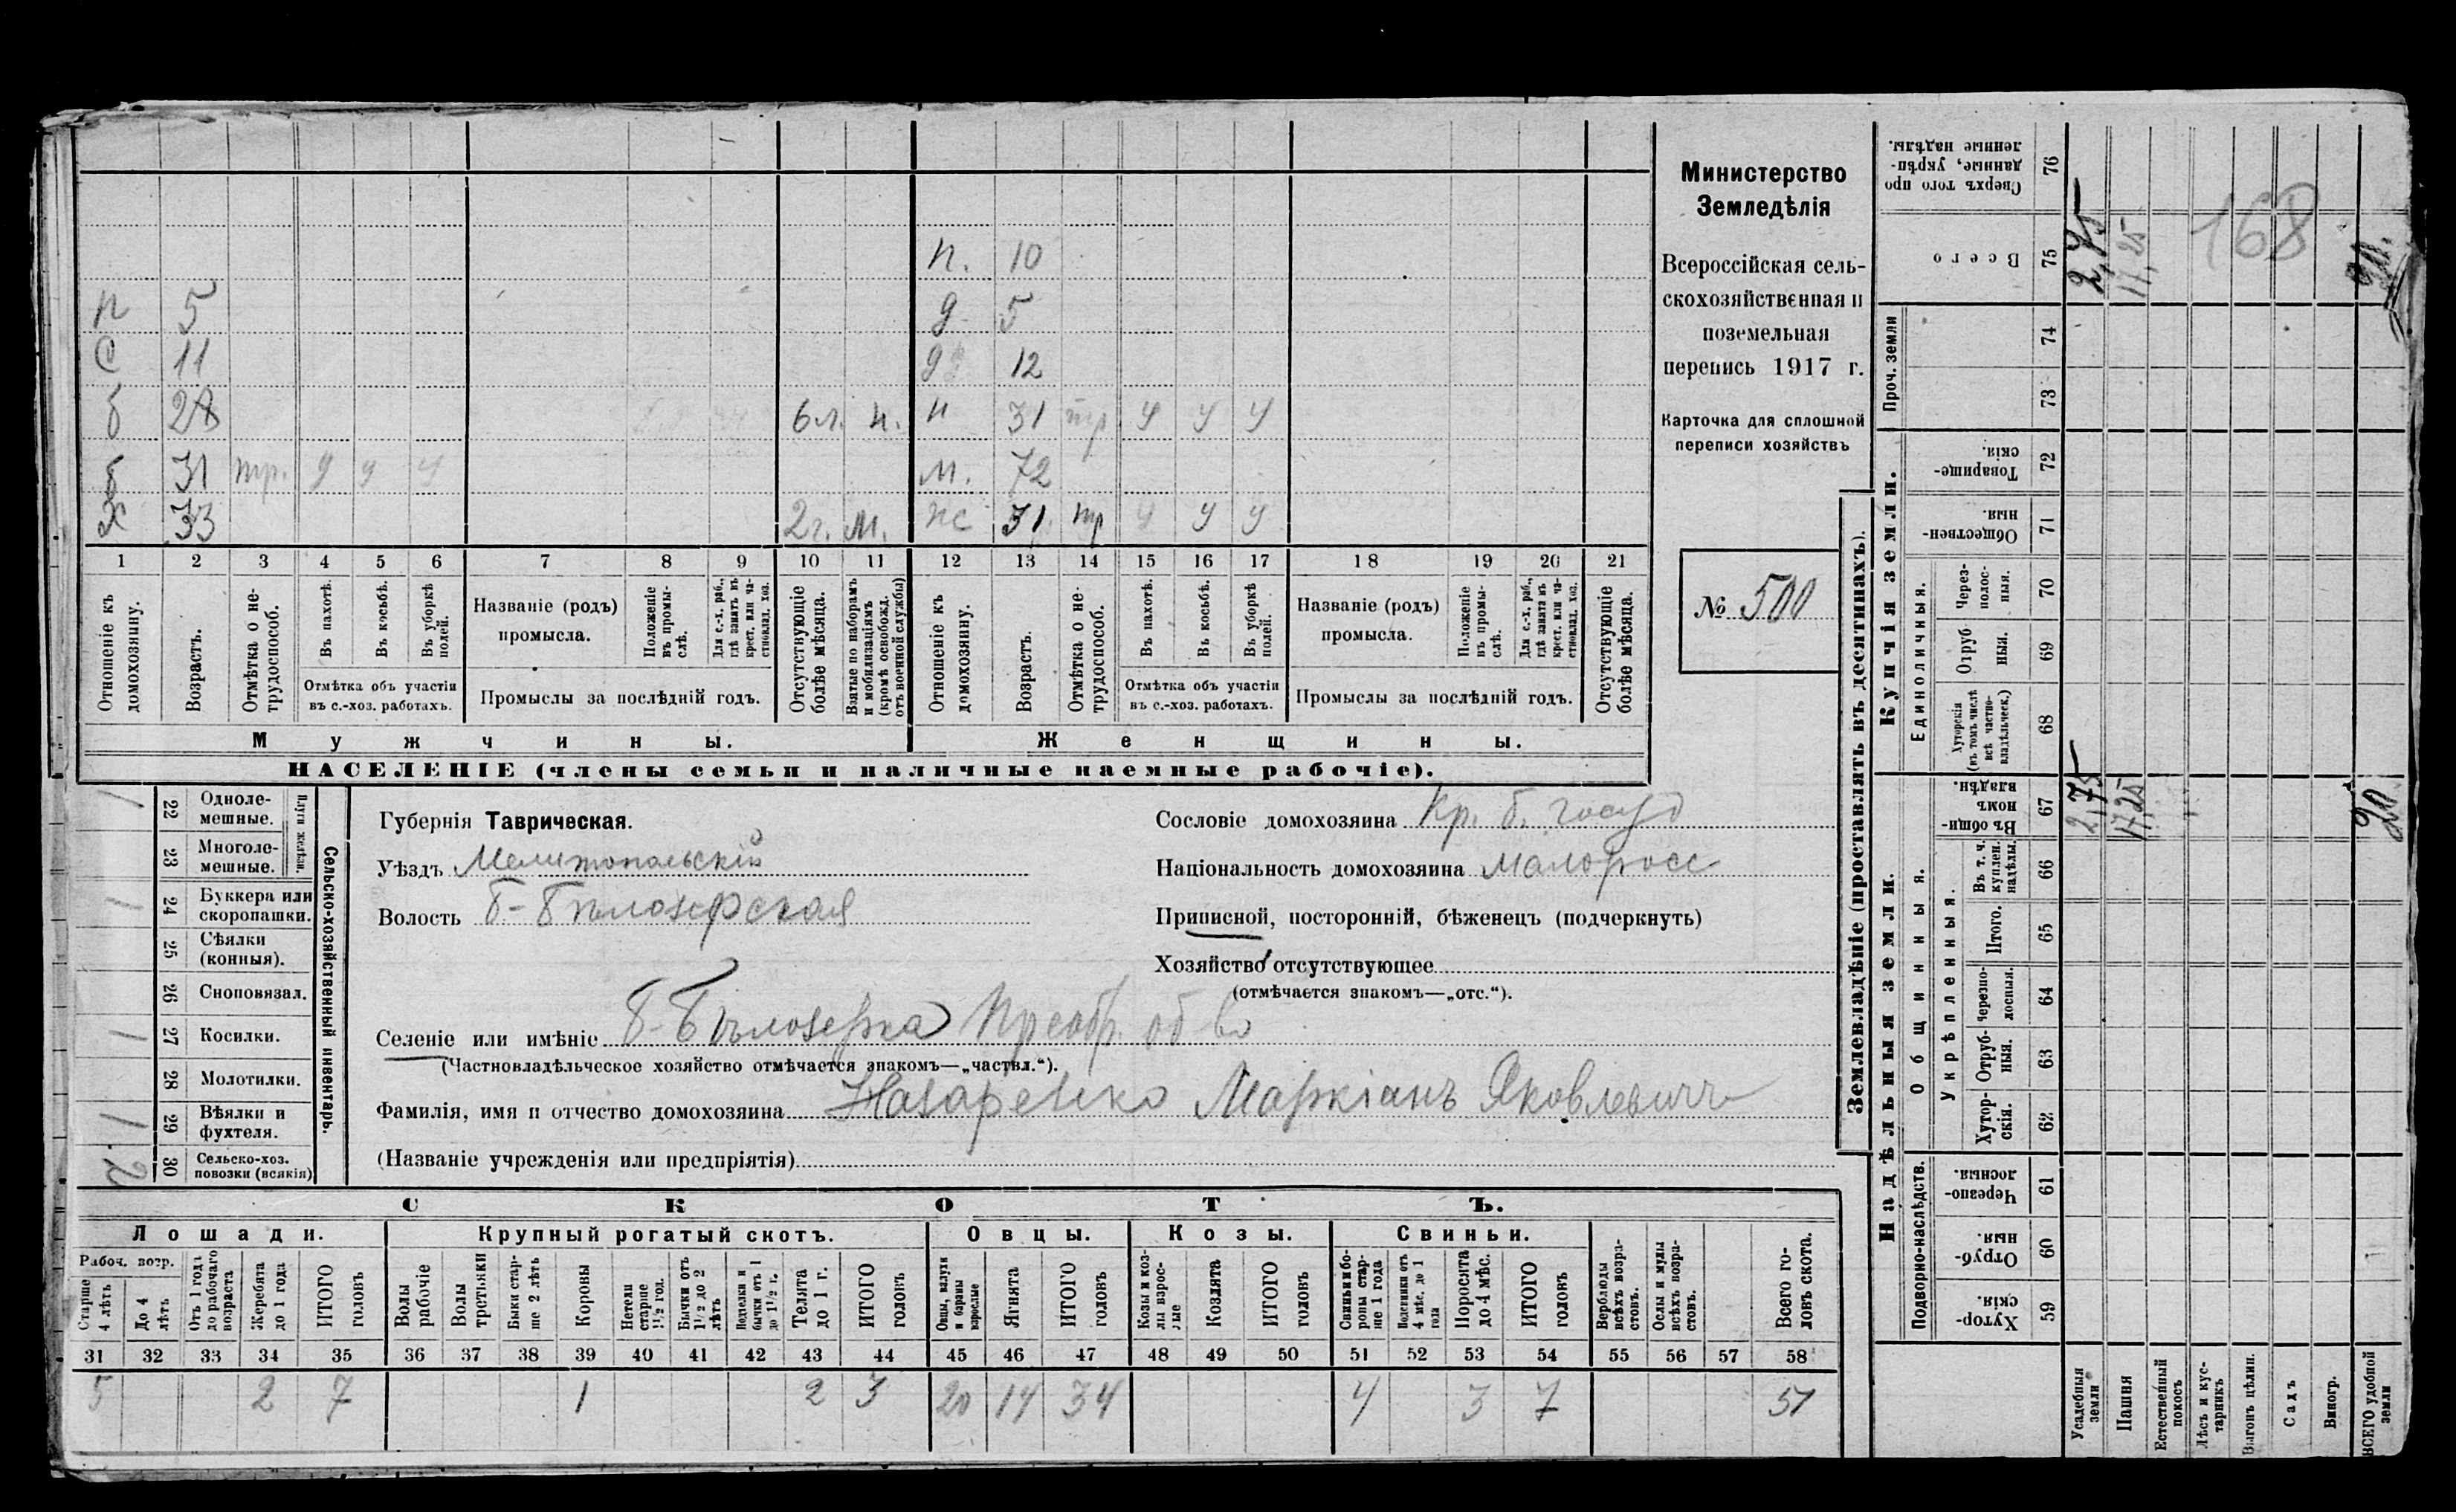 Министерство
Земледѣлія
Всероссійская сель-
скохозяйственная и
поземельная
перепись 1917 г.
Карточка для сплошной
переписи хозяйствъ
№ 500
п. 10
п 5 д 5
с 11 д 12
б 6 л. н 31 тр у у у
б 31 тр. у у у м. 72
Х 33 2 г. м. 31 тр у у у
1 2 3 4 5 6 7 8 9 10 11 12 13 14 15 16 17 18 19 20 21
Отношеніе къ домохозяину.
Возрастъ.
Отмѣтка о не-трудоспособ.
Въ пахотѣ.
Въ косьбѣ.
Въ уборкѣ полей.
Отмѣтка объ участіи въ с.-хоз. работахъ.
Названіе (родъ) промысла.
Положеніе въ промы-слѣ.
Для с.-х. раб., гдѣ занятъ въ крест. или ча-стновлад. хоз.
Промыслы за послѣдній годъ.
Отсутствующіе болѣе мѣсяца.
Взятые по наборамъ и мобилизаціямъ (кромѣ освобожд. отъ военной службы)
Отношеніе къ домохозяину.
Возрастъ.
Отмѣтка о не-трудоспособ.
Въ пахотѣ.
Въ косьбѣ.
Въ уборкѣ полей.
Отмѣтка объ участіи въ с.-хоз. работахъ.
Названіе (родъ) промысла.
Положеніе въ промы-слѣ.
Для с.-х. раб., гдѣ занята въ крест. или ча-стновлад. хоз.
Промыслы за послѣдній годъ.
Отсутствующіе болѣе мѣсяца.
Мужчины. Женщины.
НАСЕЛЕНІЕ (члены семьи и наличные наемные рабочіе).
Сельско-хозяйственный инвентарь.
Плуги желѣзн.
22 Одноле-мешные. 1
23 Многоле-мешные.
24 Буккера или скоропашки. 1
25 Сѣялки (конныя).
26 Сноповязал.
27 Косилки. 1
28 Молотилки.
29 Вѣялки и фухтеля. 1
30 Сельско-хоз. повозки (всякія) 2
Губернія Таврическая.
Уѣздъ Мелитопольскій
Волость Б-Бѣлозерская
Сословіе домохозяина Кр. б. госуд
Національность домохозяина малоросс
Приписной, посторонній, бѣженецъ (подчеркнуть)
Хозяйство отсутствующее
(отмѣчается знакомъ—„отс.“).
Селеніе или имѣніе Б-Бѣлозерка Преобр. об-во
(Частновладѣльческое хозяйство отмѣчается знакомъ—„частвл.“).
Фамилія, имя и отчество домохозяина Назаренко Маркіанъ Яковлевичъ
(Названіе учрежденія или предпріятія)
СКОТЪ.
Лошади. Крупный рогатый скотъ. Овцы. Козы. Свиньи.
Рабоч. возр.
Старше 4 лѣтъ
До 4 лѣтъ
Отъ 1 года до рабочаго возраста
Жеребята до 1 года
ИТОГО головъ
Волы рабочіе
Волы третьяки
Быки стар-ше 2 лѣтъ
Коровы
Нетели старше 1½ год.
Бычки отъ 1½ до 2 лѣтъ
Телки и бычки отъ 1 до 1½ г.
Телята до 1 г.
ИТОГО головъ
Овцы, валухи и бараны взрослые
Ягнята
ИТОГО головъ
Козы и коз-лы взрос-лые
Козлята
ИТОГО головъ
Свиньи и бо-ровы стар-ше 1 года
Подсвинки отъ 4 мѣс. до 1 года
Поросята до 4 мѣс.
ИТОГО головъ
Верблюды всѣхъ возра-стовъ.
Ослы и мулы всѣхъ возра-стовъ.
Всего го-ловъ скота.
31 32 33 34 35 36 37 38 39 40 41 42 43 44 45 46 47 48 49 50 51 52 53 54 55 56 57 58
5 2 7 1 2 3 20 14 34 4 3 7 51
Землевладѣніе (проставлять въ десятинахъ).
Надѣльныя земли. Купчія земли. Проч. земли
Подворно-наслѣдств. Общинныя. Укрѣпленныя. Единоличныя.
76 Сверхъ того про-данные, укрѣп-ленные надѣлы.
75 Всего 2,75 17,25 20.
168
74
73
72 Товарище-скія.
71 Обществен-ныя.
70 Через-полос-ныя.
69 Отруб-ныя.
68 Хуторскія (въ томъ числѣ всѣ частно-владѣльческ.)
67 Въ общин-номъ владѣн. 2,75 17,25 20
66 Въ т. ч. куплен. надѣлы.
65 Итого.
64 Черезпо-лосныя.
63 Отруб-ныя.
62 Хутор-скія.
61 Черезпо-лосныя.
60 Отруб-ныя.
59 Хутор-скія.
Усадебныя земли
Пашня
Естественный покосъ
Лѣсъ и кус-тарникъ
Выгонъ цѣлин.
Садъ
Виногр.
ВСЕГО удобной земли